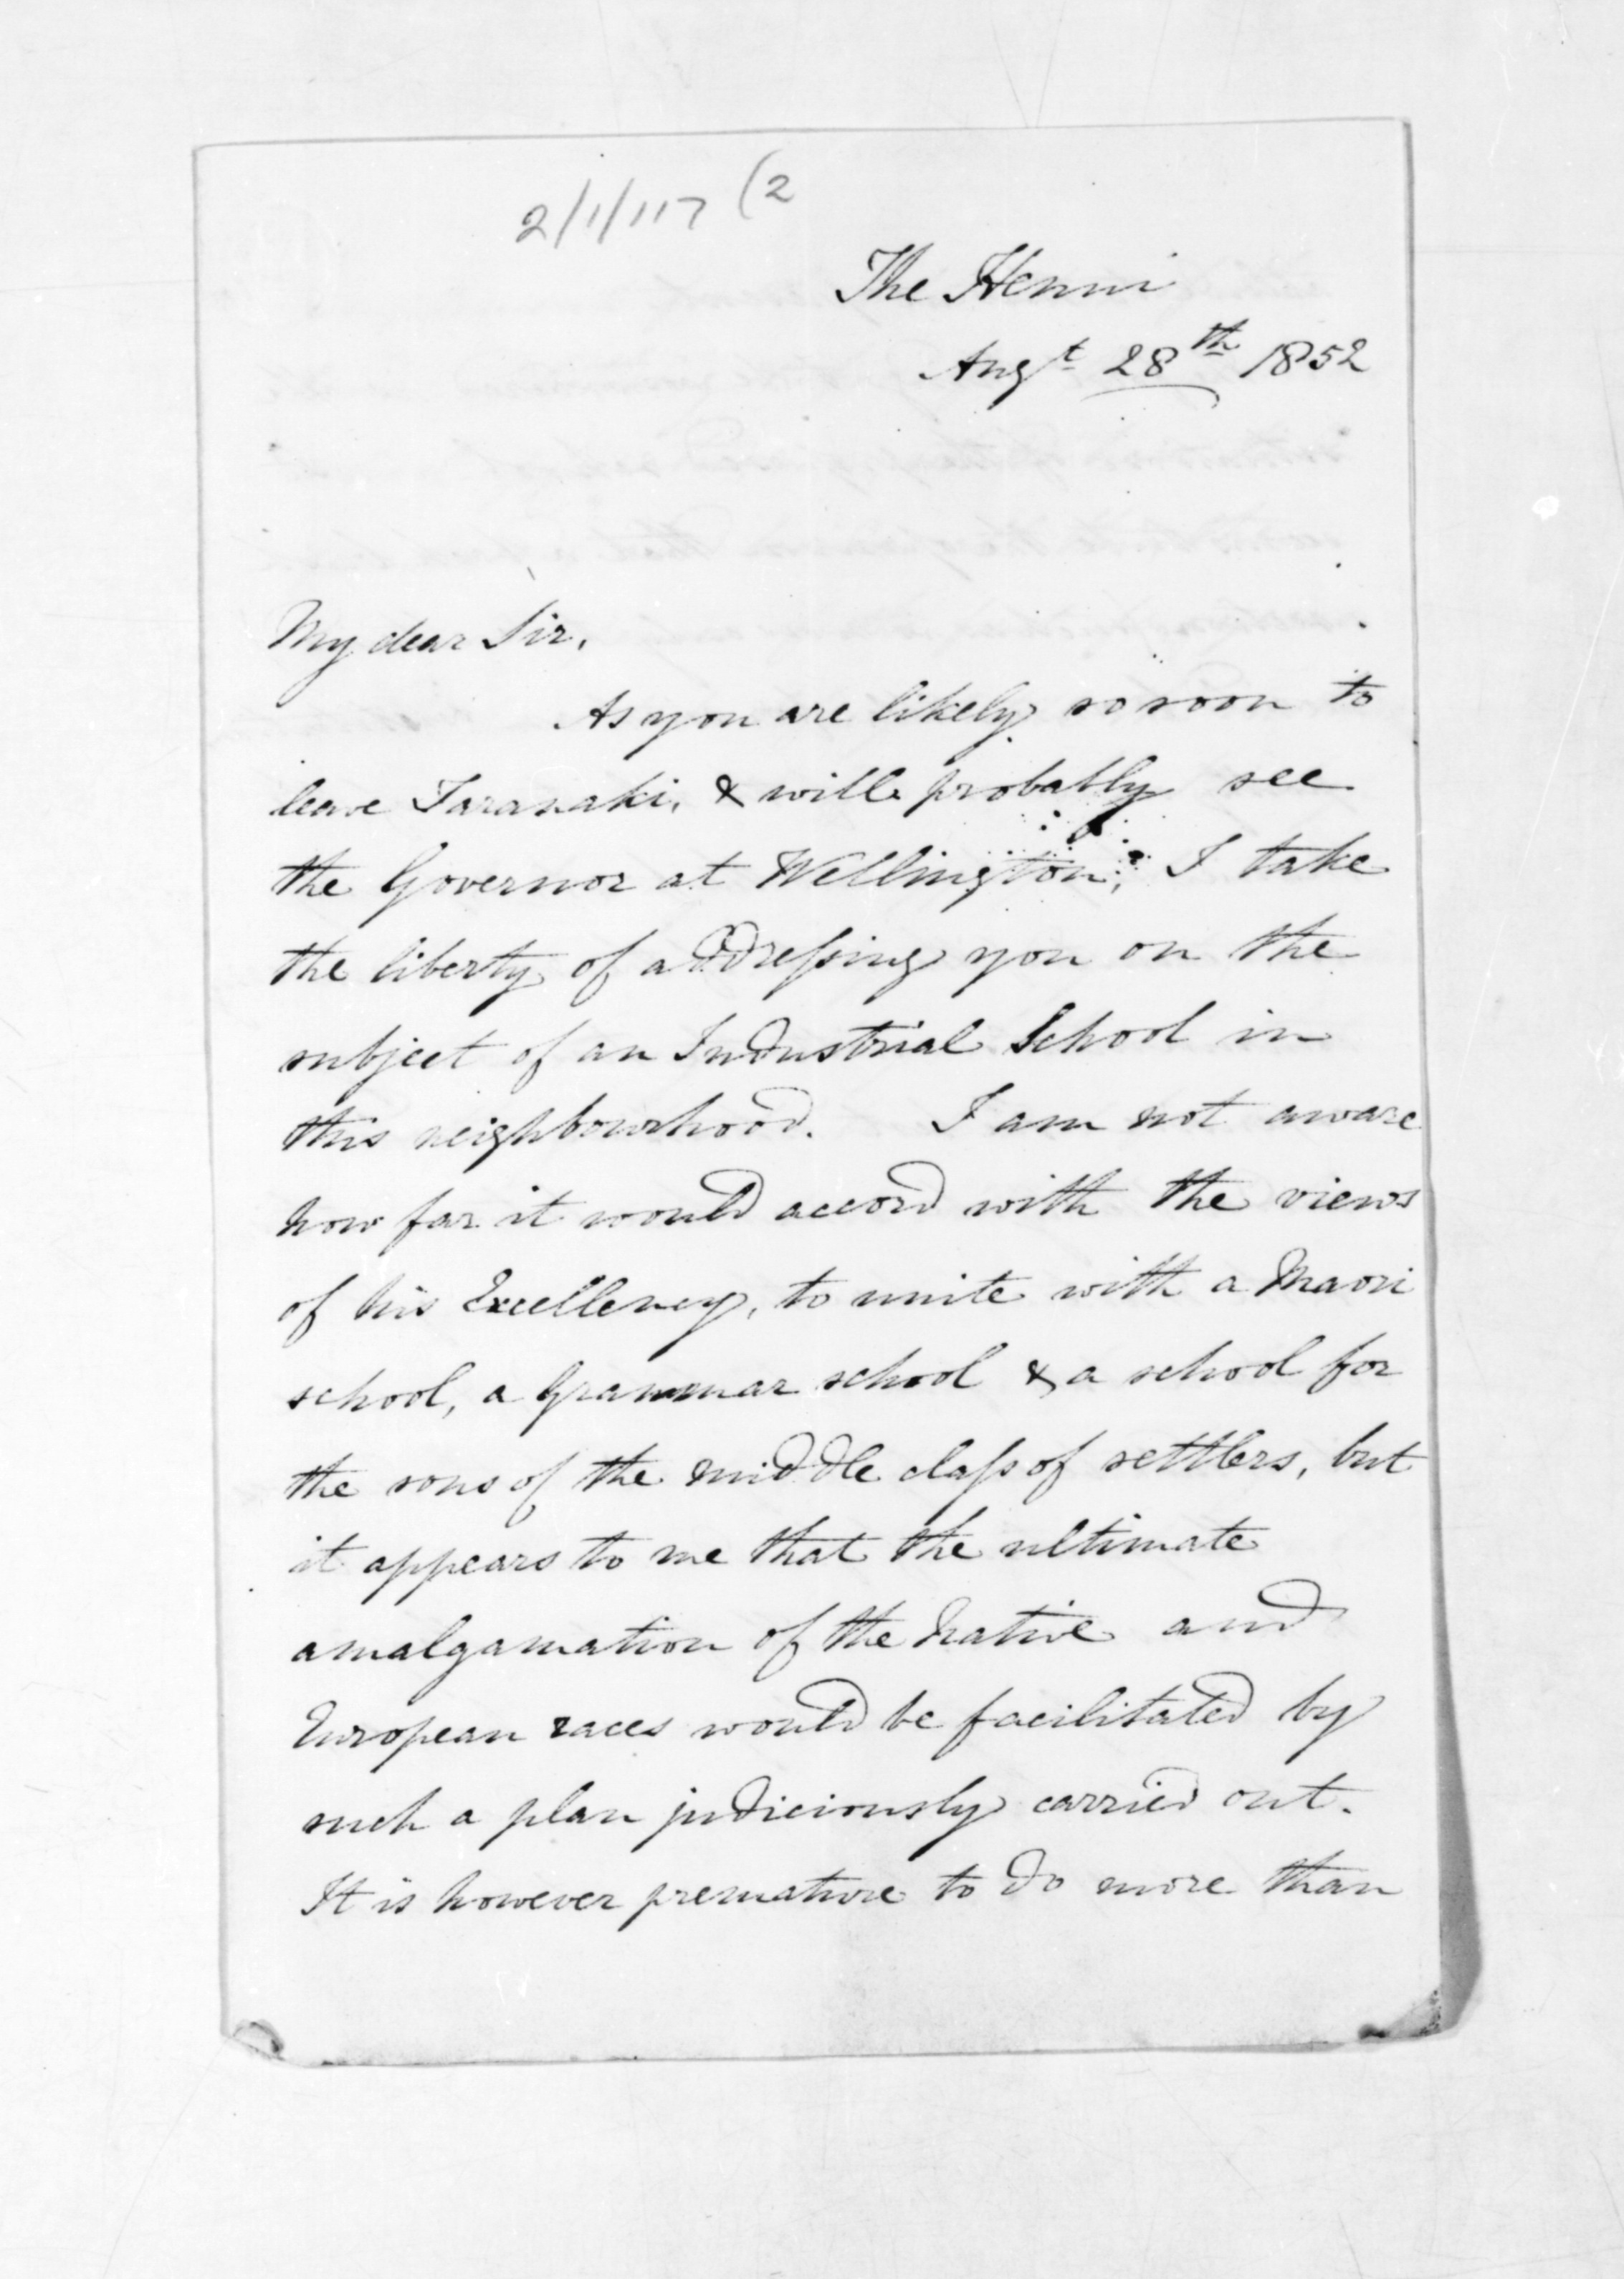 2/1/117 (2
The Henui
Augt 28th 1852
My dear Sir,
As you are likely so soon to
leave Taranaki, & will probably see
the Governor at Wellington, I take
the liberty of addressing you on the
subject of an Industrial School in
this neighbourhood. I am not aware
how far it would accord with the views
of his Excellency, to unite with a Maori
school, a Grammar school & a school for
the sons of the middle class of settlers, but
it appears to me that the ultimate
amalgamation of the Native and
European races would be facilitated by
such a plan judiciously carried out.
It is however premature to do more than